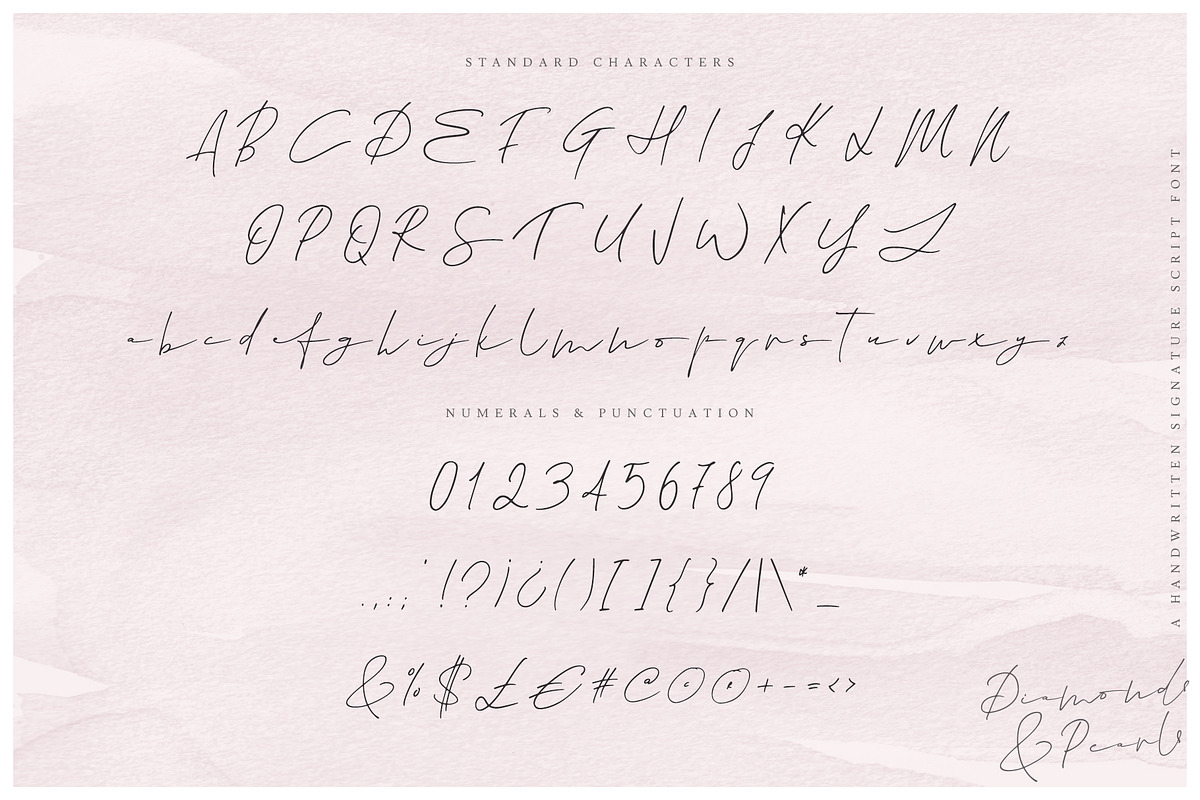 STANDARD CHARACTERS
A B C D E F G H I J K L M N
O P Q R S T U V W X Y Z
a b c d e f g h i j k l m n o p q r s t u v w x y z
NUMERALS & PUNCTUATION
0 1 2 3 4 5 6 7 8 9
. , : ; ' ! ? ¡ ¿ ( ) [ ] { } / | \ * _
& % $ £ € # @ © ® + - = < >
A HANDWRITTEN SIGNATURE SCRIPT FONT
Diamonds
& Pearls